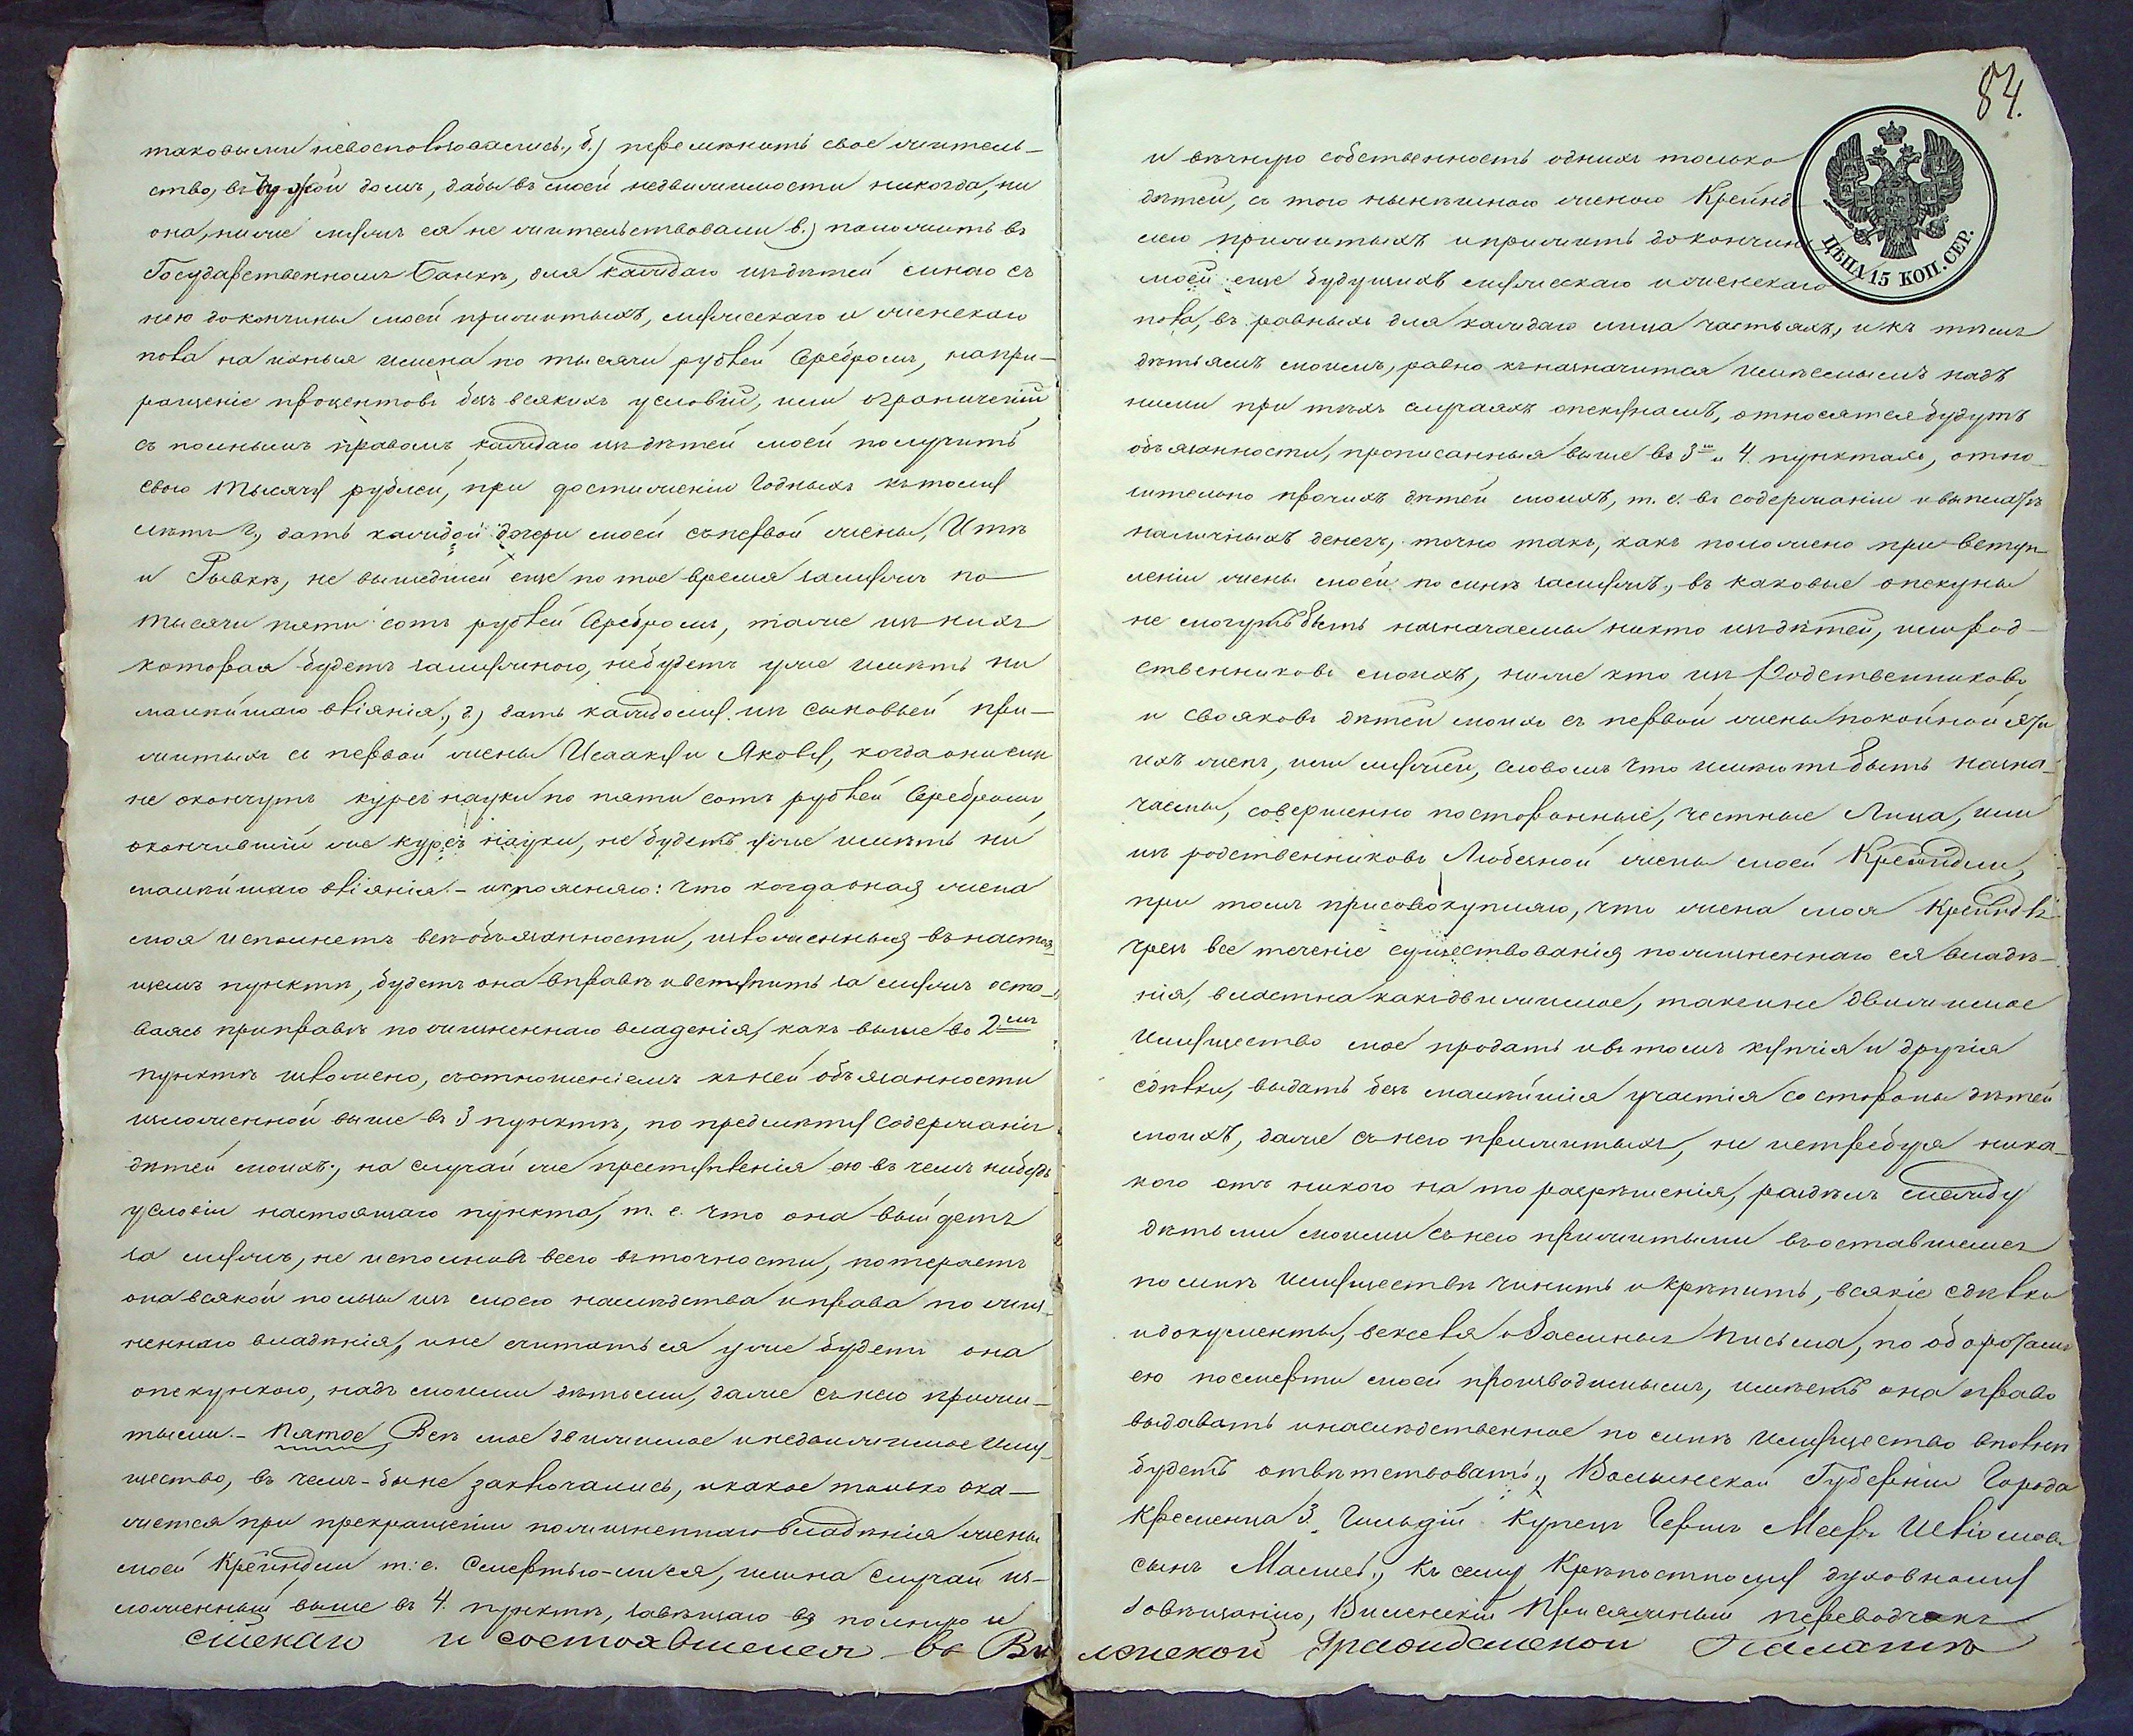 таковыми невоспользовались., б.) перемѣнить свое житель-
ство, въ чужой домъ, дабы въ моей недвижимости никогда, ни
она, ниже мужъ ея не жительствовали в.) положить въ
Государственномъ Банкѣ, для каждаго изъ дѣтей мною съ
нею до кончины моей прижитыхъ, мужескаго и женскаго
пола на ихныя имена по тысячи рублей Серебромъ, на при-
ращеніе процентовъ безъ всякихъ условій, или ограниченій
съ полнымъ правомъ каждаго изъ дѣтей моей получить
свою тысячу рублей, при достиженіи годныхъ къ тому
лѣтъ г, дать каждой дочери моей съ первой жены, Иткѣ
и Рывкѣ, не вышедшей еще по тое время замужъ по
тысячи пяти сотъ рублей Серебромъ, таже изъ нихъ
которая будетъ замужною, небудетъ уже имѣть ни
малѣйшаго вліянія., г) дать каждому изъ сыновьей при-
житыхъ съ первой жены Исааку и Якову, когда они еще
не окончутъ курсъ науки по пяти сотъ рублей Серебромъ,
окончившій же курсъ науки, не будетъ уже имѣть ни
малѣйшаго вліянія. - изъясняю: что когда оная жена
моя исполнетъ всѣ обязанности, изложенныя въ настоя-
щемъ пунктѣ, будетъ она вправѣ и вступить за мужъ оста-
ваясь при правѣ пожизненнаго владенія, какъ выше во 2мъ
пунктѣ изложено, съ отношеніемъ къ ней обязанности
изложенной выше въ 3 пунктѣ, по предмету содержанія
дѣтей моихъ., на случай же преступленія ею въ чемъ нибудь
условіи настоящаго пункта, т. е. что она выйдетъ
за мужъ, не исполнивъ всего въ точности, потеряетъ
она всякой пользы изъ моего наслѣдства и права пожиз-
неннаго владѣнія, и не считаться уже будетъ она
опекункою, надъ моими дѣтьми, даже съ нею прижи-
тыми. - Пятое, Все мое движимое и недвижимое иму-
щество, въ чемъ-бы не заключались, и какое только ока-
жется при прекращеніи пожизненнаго владѣнія жены
моей Крейндли т: е. Смертью-ли ея, или на случай из-
ложенный выше въ 4. пунктѣ, завѣщаю въ полную и
скаго и состоявшемся въ Ви
84.
и вѣчную собственность однихъ только
дѣтей, съ тою нынѣшною женою Крейнд
лею прижитыхъ и прижить до кончины
моей еще будущихъ мужескаго и женскаго
пола, въ равныхъ для каждаго лица частьяхъ, и къ тѣмъ
дѣтьямъ моимъ, равно къ назначится имѣемымъ надъ
ними при тѣхъ случаяхъ опекунамъ, относятся будутъ
обязанности, прописанныя выше въ 3мъ и 4. пунктахъ, отно-
сительно прочихъ дѣтей моихъ, т. е. въ содержаніи и выплатѣ
наличныхъ денегъ, точно такъ, какъ положено при вступ-
леніи жены моей по мнѣ замужъ., въ каковые опекуны
не могутъ быть назначаемы никто изъ дѣтей, или род-
ственниковъ моихъ, ниже кто изъ Родственниковъ
и свояковъ дѣтей моихъ съ первой жены покойной
ихъ женъ, или мужей, словомъ что имѣютъ быть назна-
чаемы, совершенно посторонные, честные Лица, или
изъ родственниковъ Любезной жены моей Крейндли,
при томъ присовокупляю, что жена моя Крейндля
чрезъ все теченіе существованія пожизненнаго ея владѣ-
нія, властна какъ движимое, такъ и не движимое
Имущество мое продать и въ томъ купчія и другія
сдѣлки, выдать безъ малѣйшія участія со стороны дѣтей
моихъ, даже съ нею прижитыхъ, ни истребуя ника-
кого отъ никого на то разрѣшенія, раздѣлъ между
дѣтьми моими съ нею прижитыми въ оставшемся
по мнѣ имуществѣ чинить и крѣпить, всякіе сдѣлки
и документы, векселя и Заемныя письма, по оборотамъ
ею по смерти моей производимымъ, имѣетъ она право
выдавать и наслѣдственное по мнѣ имущество вполнѣ
будетъ отвѣтствовать., Волынской Губерніи Города
Кременца 3. Гильдіи Купецъ Герш Меер Шліомов
сынъ, Къ сему Крѣпостному духовному
завѣщанію, Виленскій Присяжный переводчикъ
ленской Гражданской Палатѣ
ЦѢНА 15 КОП. СЕР.